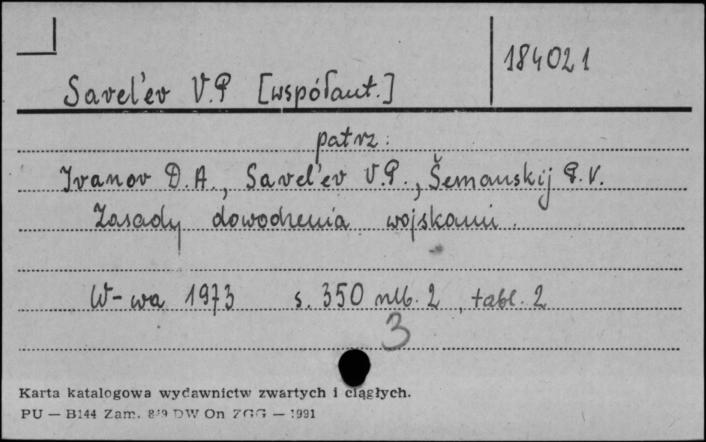 184021
Savel'ev V.P [współaut.]
patrz:
Ivanov D.A., Savel'ev V.P., Šemanskij P.V.
Zasady dowodzenia wojskami.
W-wa 1973 s. 350 nlb. 2, tabl. 2
3
Karta katalogowa wydawnictw zwartych i ciągłych.
PU — B144 Zam. DW On ZGG — 1991